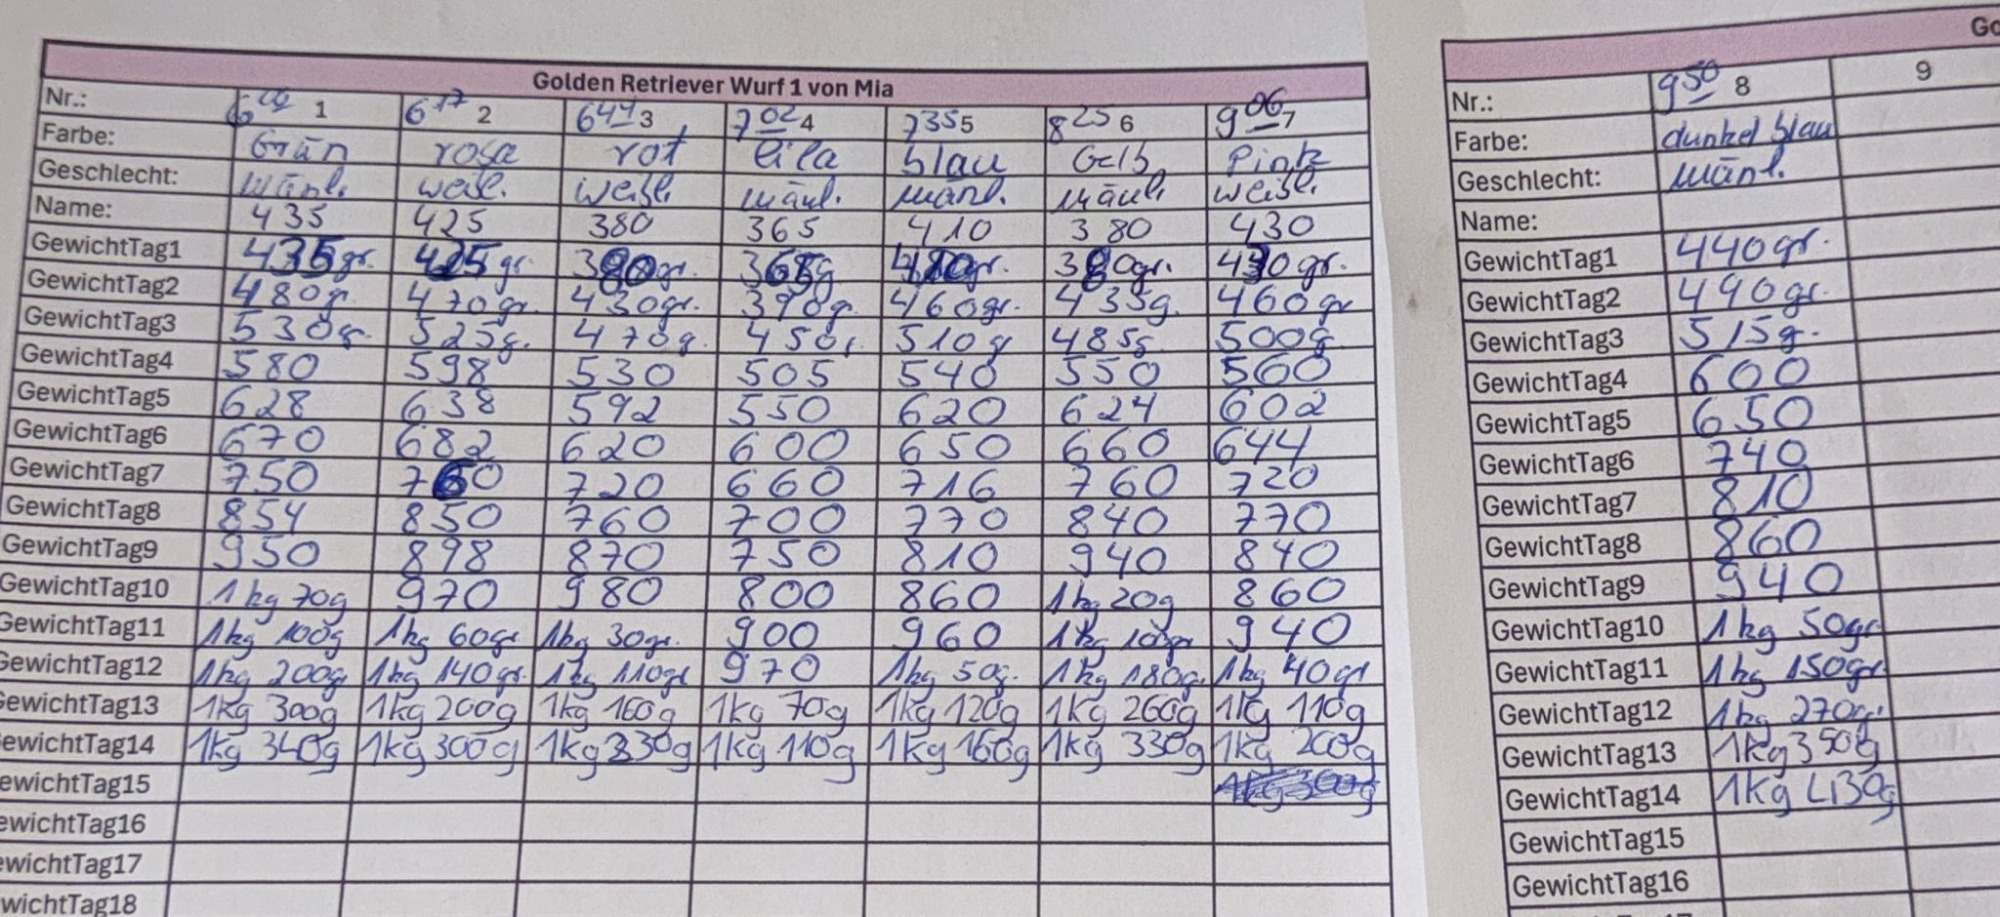 Golden Retriever Wurf 1 von Mia
Nr.: 1 6 17 2 6 44 3 7 02 4 7 35 5 8 25 6 9 06 7
Farbe: Grün rosa rot lila blau Gelb Pink
Geschlecht: mänl. weil. weibl. mänl. mänl. mänl. weibl.
Name: 435 425 380 365 410 380 430
GewichtTag1 435gr. 425gr. 380gr. 365g 410gr. 380gr. 430gr.
GewichtTag2 480gr. 470gr. 430gr. 390gr. 460gr. 435g. 460gr
GewichtTag3 530gr. 525g. 470g. 450g. 510g 485g 500g
GewichtTag4 580 598 530 505 540 550 560
GewichtTag5 628 638 592 550 620 624 602
GewichtTag6 670 682 620 600 650 660 644
GewichtTag7 750 760 720 660 716 760 720
GewichtTag8 854 850 760 700 770 840 770
GewichtTag9 950 898 870 750 810 940 840
GewichtTag10 1kg 70g 970 980 800 860 1kg 20g 860
GewichtTag11 1kg 100g 1kg 60gr 1kg 30gr. 900 960 1kg 100gr 940
GewichtTag12 1kg 200g 1kg 140gr. 1kg 110gr 970 1kg 50g. 1kg 180g. 1kg 40gr
ewichtTag13 1kg 300g 1kg 200g 1kg 160g 1kg 70g 1kg 120g 1kg 260g 1kg 110g
ewichtTag14 1kg 340g 1kg 300g 1kg 330g 1kg 110g 1kg 160g 1kg 330g 1kg 200g
ewichtTag15
ewichtTag16
wichtTag17
wichtTag18
Go
Nr.: 9 50 8 9
Farbe: dunkel blau
Geschlecht: mänl.
Name:
GewichtTag1 440gr.
GewichtTag2 490gr.
GewichtTag3 515g.
GewichtTag4 600
GewichtTag5 650
GewichtTag6 740
GewichtTag7 810
GewichtTag8 860
GewichtTag9 940
GewichtTag10 1kg 50gr
GewichtTag11 1kg 150gr
GewichtTag12 1kg 270gr.
GewichtTag13 1kg 350g
GewichtTag14 1kg 430g
GewichtTag15
GewichtTag16